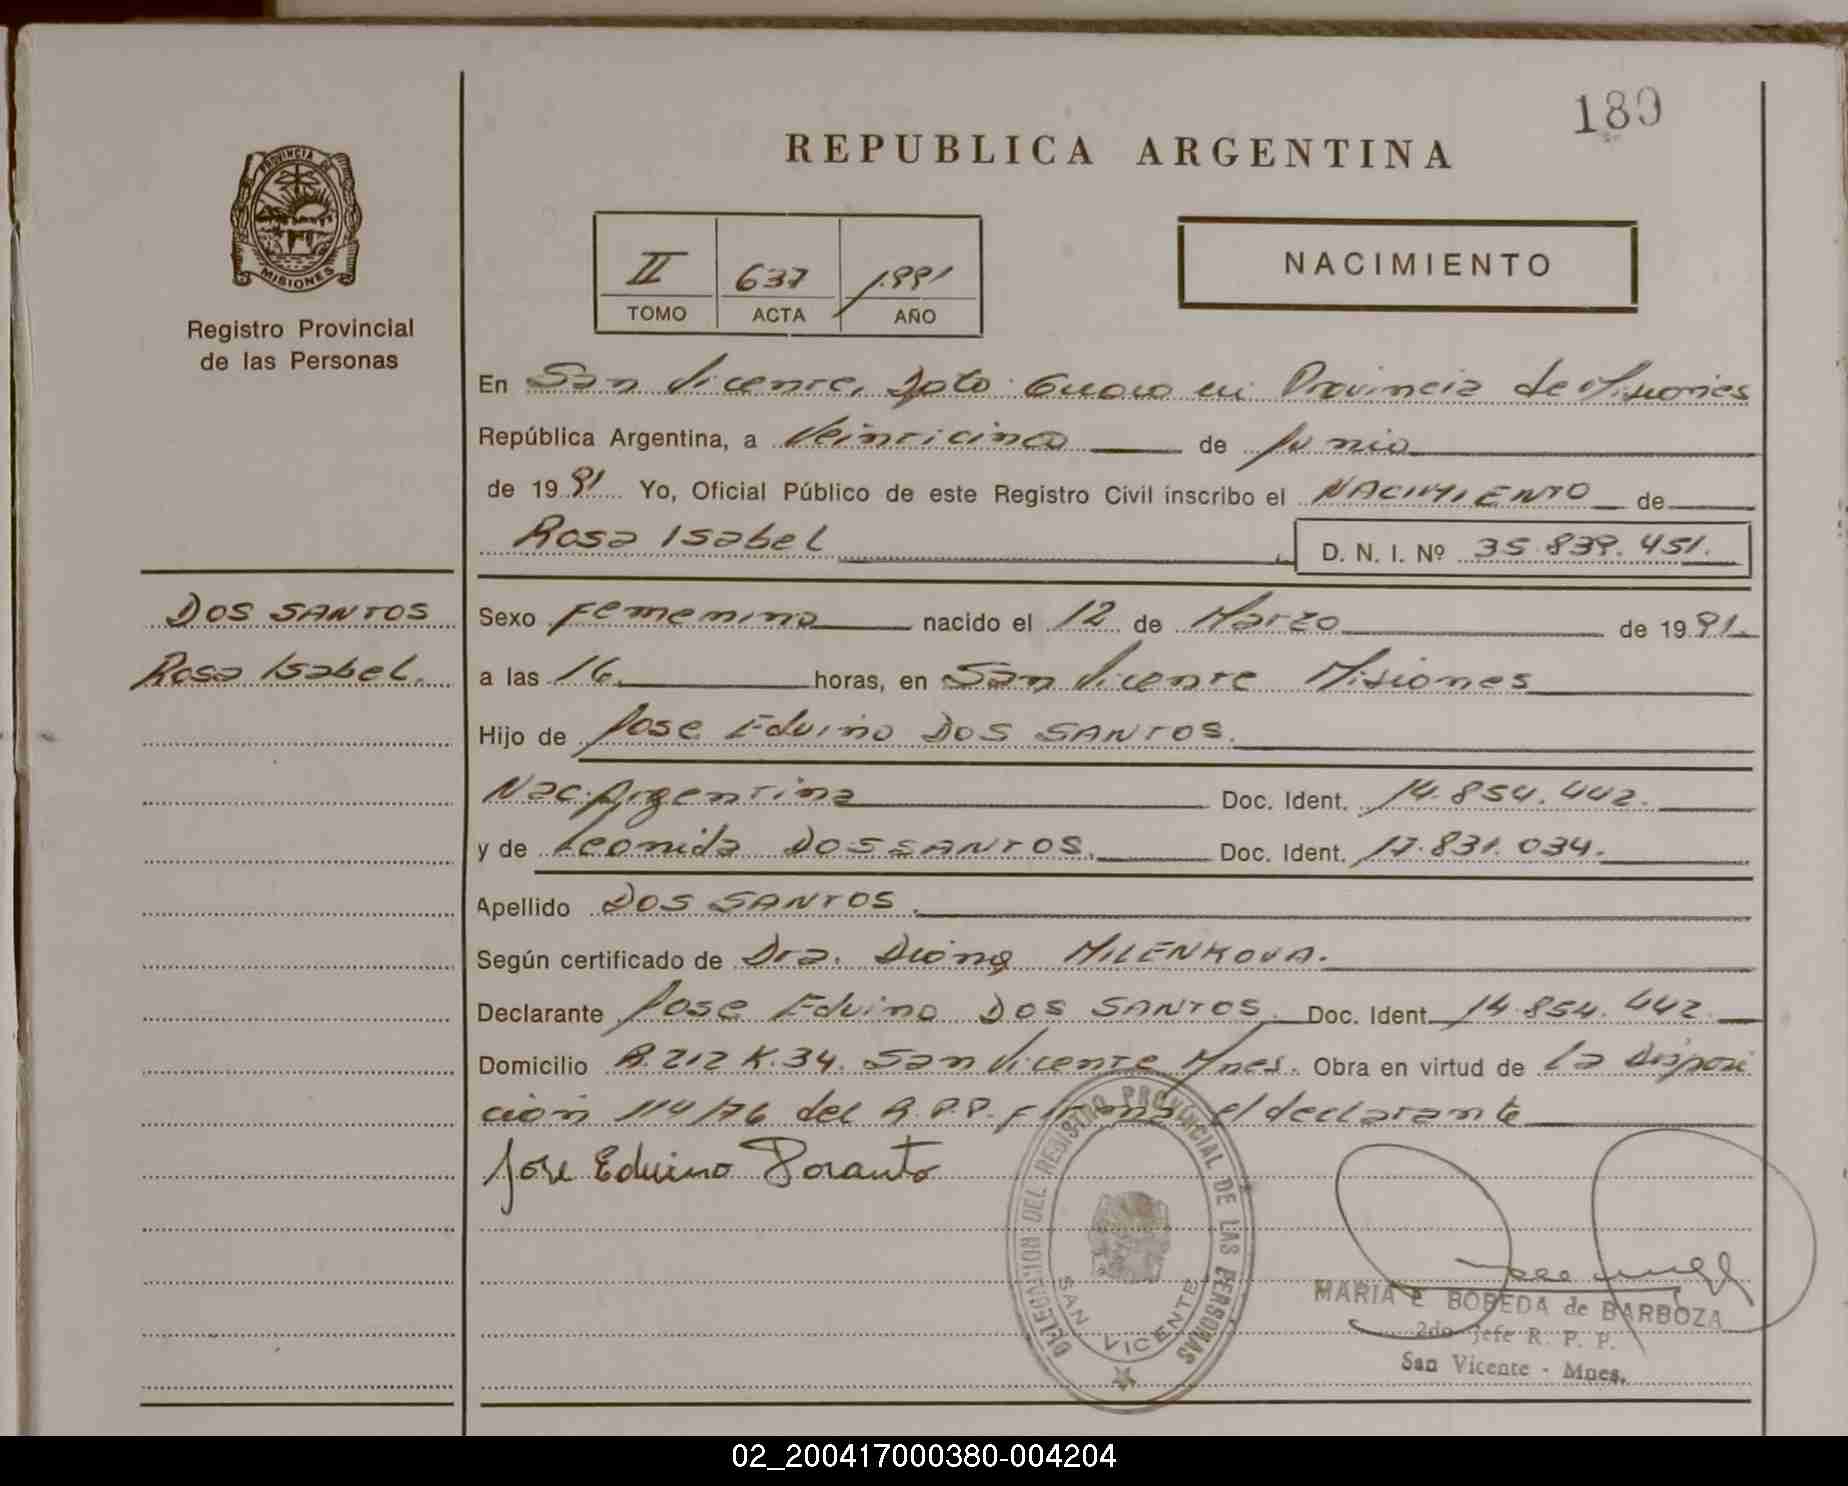 180
REPUBLICA ARGENTINA
PROVINCIA DE
MISIONES
Registro Provincial
de las Personas
II 637 1991
TOMO ACTA AÑO
NACIMIENTO
En San Vicente, Dpto Guaraní Provincia de Misiones
República Argentina, a Veinticinco de Junio
de 1991 Yo, Oficial Público de este Registro Civil inscribo el NACIMIENTO de
Rosa Isabel D. N. I. Nº 35.839.451.
DOS SANTOS
Rosa Isabel.
Sexo Femenino nacido el 12 de Marzo de 1991.
a las 16 horas, en San Vicente Misiones
Hijo de Jose Eduino DOS SANTOS.
Nac. Argentina Doc. Ident. 14.854.442.
y de Leonida DOS SANTOS. Doc. Ident. 17.831.034.
Apellido DOS SANTOS.
Según certificado de Dra. MILENKOVA.
Declarante Jose Eduino DOS SANTOS. Doc. Ident. 14.854.442.
Domicilio R. 212 K. 34. San Vicente Mnes. Obra en virtud de la Disposi
ción 114/76 del R.P.P. firma el declarante
Jose Eduino
DELEGACION DEL REGISTRO PROVINCIAL DE LAS PERSONAS
SAN VICENTE
MARIA E BOBEDA de BARBOZA
2do Jefe R. P. P.
San Vicente - Mnes.
02_200417000380-004204